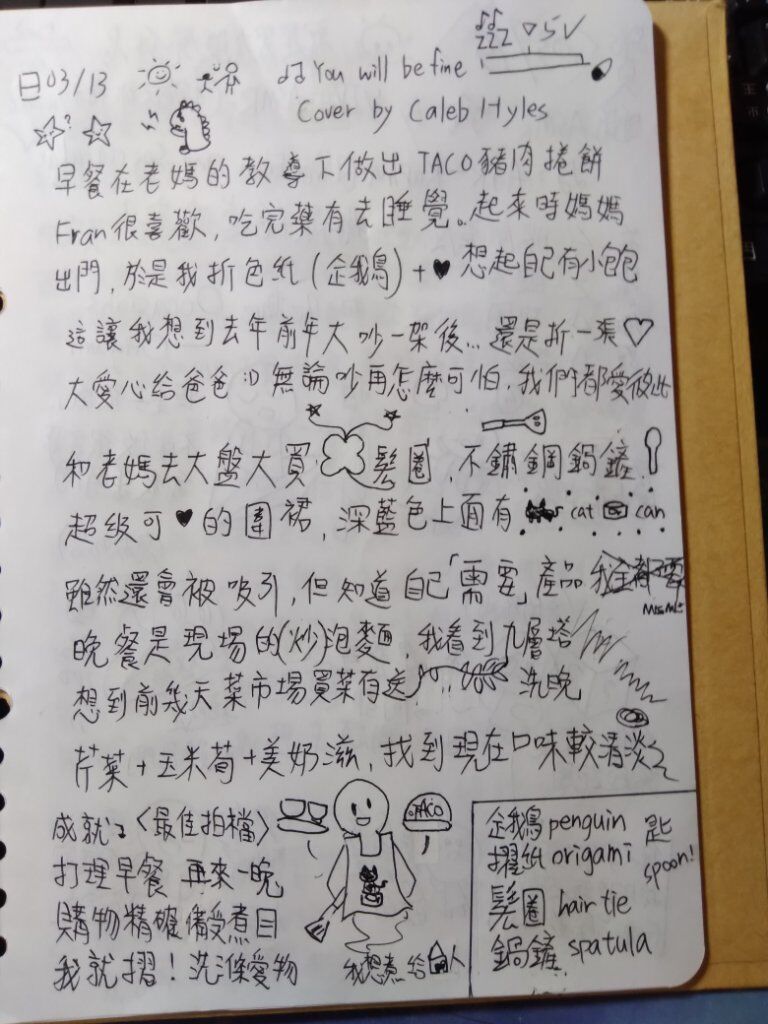 日03/13
♫ You will be fine
Cover by Caleb Hyles
ZZZ
早餐在老媽的教導下做出 TACO豬肉捲餅
Fran很喜歡，吃完藥有去睡覺。起來時媽媽
出門，於是我折色紙(企鵝)+♥想起自己有小鮑
這讓我想到去年前年大吵一架後...還是折一張♡
大愛心給爸爸:D 無論吵再怎麼可怕，我們都愛彼此
和老媽去大盤大買 髮圈，不鏽鋼鍋鏟
超級可♥的圍裙，深藍色上面有 cat can
雖然還會被吸引，但知道自己「需要」產品
晚餐是現場的(炒)泡麵，我看到九層塔
想到前幾天菜市場買菜有送... 洗晚
芹菜+玉米荀+美奶滋，找到現在口味較清淡
成就↴〈最佳拍檔〉
打理早餐 再來一晚
購物精確備受煮目
我就摺！洗滌愛物
TACO
我想煮給 人
企鵝 penguin
摺紙 origami
髮圈 hair tie
鍋鏟 spatula
匙
spoon!